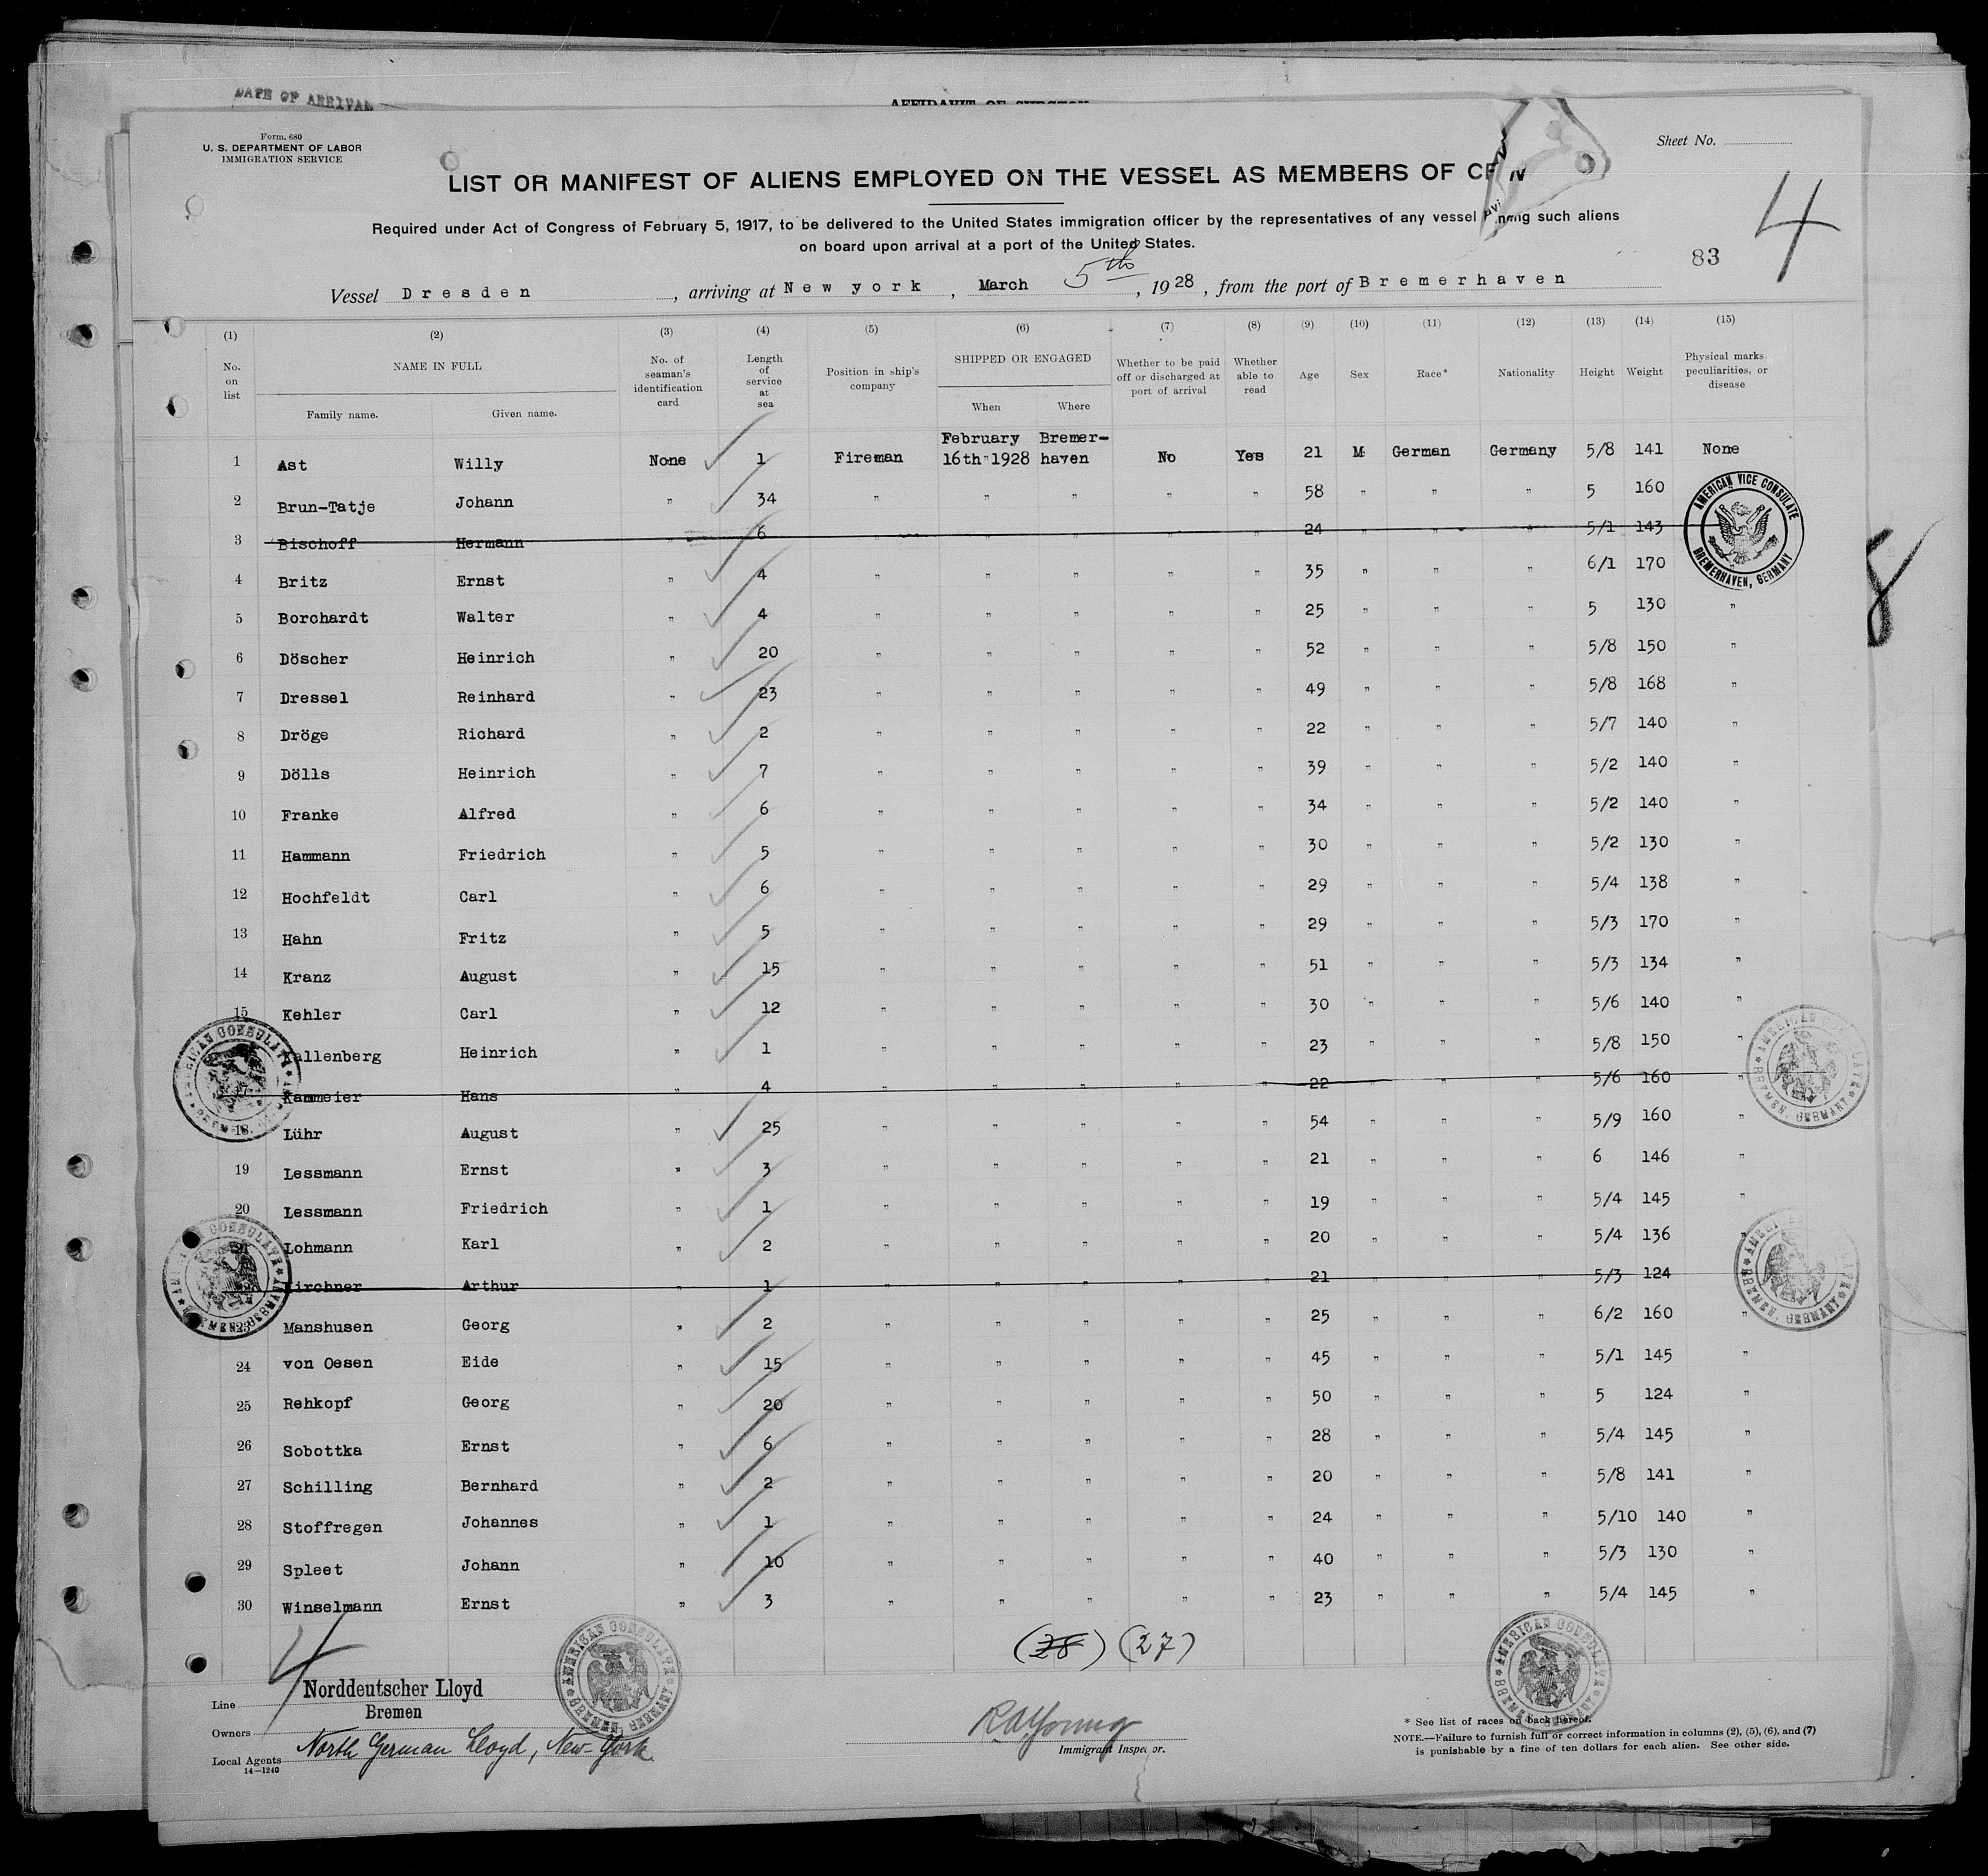 DATE OF ARRIVAL
AFFIDAVIT OF SURGEON
Form. 680
U. S. DEPARTMENT OF LABOR
IMMIGRATION SERVICE
Sheet No.
LIST OR MANIFEST OF ALIENS EMPLOYED ON THE VESSEL AS MEMBERS OF
Required under Act of Congress of February 5, 1917, to be delivered to the United States immigration officer by the representatives of any vessel such aliens
on board upon arrival at a port of the United States.
83
4
Vessel Dresden, arriving at New york, March 5th, 1928, from the port of Bremerhaven
(1) (2) (3) (4) (5) (6) (7) (8) (9) (10) (11) (12) (13) (14) (15)
No. on list NAME IN FULL Family name. Given name. No. of seaman's identification card Length of service at sea Position in ship's company SHIPPED OR ENGAGED When Where Whether to be paid off or discharged at port of arrival Whether able to read Age Sex Race* Nationality Height Weight Physical marks, peculiarities, or disease
February Bremer-
1 Ast Willy None 1 Fireman 16th 1928 haven No Yes 21 M German Germany 5/8 141 None
2 Brun-Tatje Johann " 34 " " " " " 58 " " " 5 160
3 Bischoff Hermann " 6 " " " " " 24 " " " 5/1 143
4 Britz Ernst " 4 " " " " " 35 " " " 6/1 170
5 Borchardt Walter " 4 " " " " " 25 " " " 5 130 "
6 Döscher Heinrich " 20 " " " " " 52 " " " 5/8 150 "
7 Dressel Reinhard " 23 " " " " " 49 " " " 5/8 168 "
8 Dröge Richard " 2 " " " " " 22 " " " 5/7 140 "
9 Dölls Heinrich " 7 " " " " " 39 " " " 5/2 140 "
10 Franke Alfred " 6 " " " " " 34 " " " 5/2 140 "
11 Hammann Friedrich " 5 " " " " " 30 " " " 5/2 130 "
12 Hochfeldt Carl " 6 " " " " " 29 " " " 5/4 138 "
13 Hahn Fritz " 5 " " " " " 29 " " " 5/3 170 "
14 Kranz August " 15 " " " " " 51 " " " 5/3 134 "
15 Kehler Carl " 12 " " " " " 30 " " " 5/6 140 "
Heinrich " 1 " " " " " 23 " " " 5/8 150 "
Kammeier Hans " 4 " " " " " 22 " " " 5/6 160 "
18 Lühr August " 25 " " " " " 54 " " " 5/9 160 "
19 Lessmann Ernst " 3 " " " " " 21 " " " 6 146 "
20 Lessmann Friedrich " 1 " " " " " 19 " " " 5/4 145 "
21 Lohmann Karl " 2 " " " " " 20 " " " 5/4 136 "
Kirchner Arthur " 1 " " " " " 21 " " " 5/3 124
23 Manshusen Georg " 2 " " " " " 25 " " " 6/2 160 "
24 von Oesen Eide " 15 " " " " " 45 " " " 5/1 145 "
25 Rehkopf Georg " 20 " " " " " 50 " " " 5 124 "
26 Sobottka Ernst " 6 " " " " " 28 " " " 5/4 145 "
27 Schilling Bernhard " 2 " " " " " 20 " " " 5/8 141 "
28 Stoffregen Johannes " 1 " " " " " 24 " " " 5/10 140 "
29 Spleet Johann " 10 " " " " " 40 " " " 5/3 130 "
30 Winselmann Ernst " 3 " " " " " 23 " " " 5/4 145 "
AMERICAN VICE CONSULATE
BREMERHAVEN, GERMANY
8
AMERICAN CONSULATE
BREMEN, GERMANY
AMERICAN CONSULATE
BREMEN, GERMANY
AMERICAN CONSULATE
BREMEN, GERMANY
AMERICAN CONSULATE
BREMEN, GERMANY
(28) (27)
4
AMERICAN CONSULATE
BREMEN, GERMANY
AMERICAN CONSULATE
BREMEN, GERMANY
Line Norddeutscher Lloyd
Bremen
Owners
Local Agents North German Lloyd, New-York
14—1240
R A Young
Immigrant Inspector.
* See list of races on back hereof.
NOTE.—Failure to furnish full or correct information in columns (2), (5), (6), and (7)
is punishable by a fine of ten dollars for each alien. See other side.